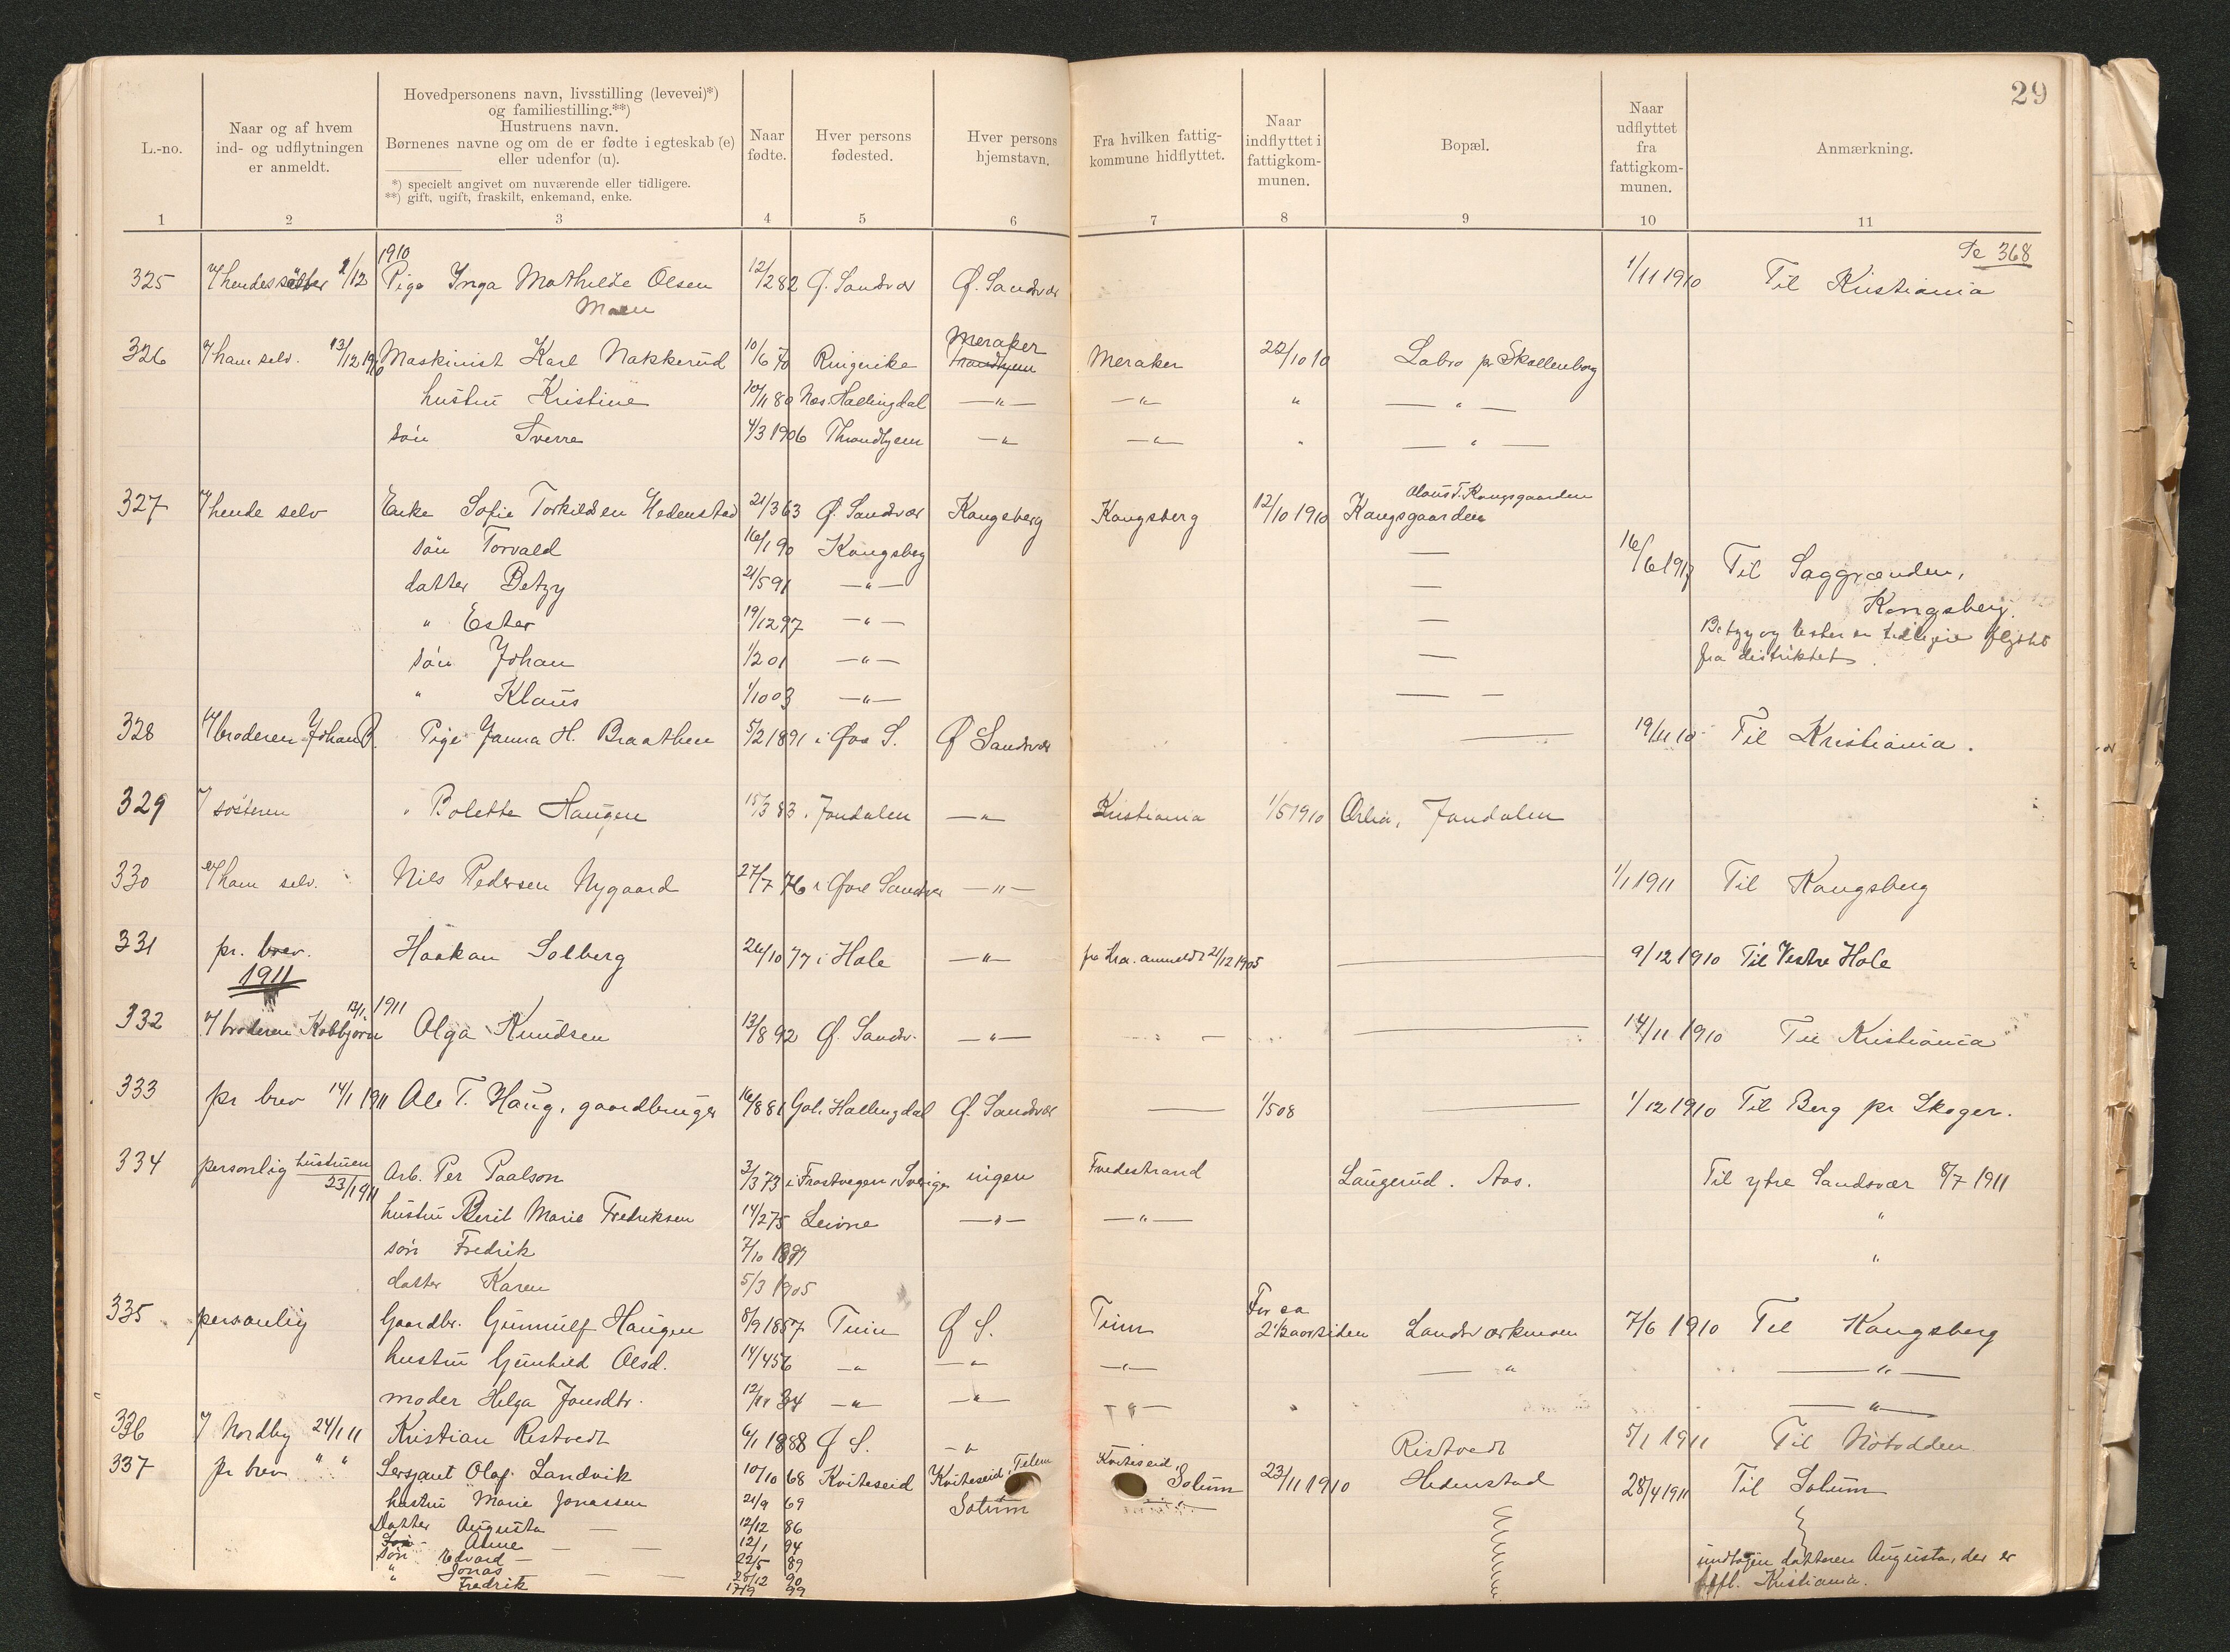 29
L.-no.
Naar og af hvem
ind- og udflytningen
er anmeldt.
Hovedpersonens navn, livsstilling (levevei)*)
og familiestilling.**)
Hustruens navn.
Børnenes navne og om de er fødte i egteskab (e)
eller udenfor (u).
*) specielt angivet om nuværende eller tidligere.
**) gift, ugift, fraskilt, enkemand, enke.
Naar
fødte.
Hver persons
fødested.
Hver persons
hjemstavn.
Fra hvilken fattig-
kommune hidflyttet.
Naar
indflyttet i
fattigkom-
munen.
Bopæl.
Naar
udflyttet
fra
fattigkom-
munen.
Anmærkning.
1 2 3 4 5 6 7 8 9 10 11
1910
368
325 Pige Inga Mathilde Olsen 12/2 82 Ø. Sandsvær Ø. Sandsvær 1/11 1910 Til Kristiania
Moen
Meraker
326 ham selv. 13/12 1910 Maskinist Karl Nakkerud 10/6 70 Ringerike Trondhjem Meraker 22/10 10 Labro pr Skollenborg
hustru Kristine 10/11 80 Nes. Hallingdal — " — — " — " — " —
søn Sverre 4/3 1906 Throndhjem — " — " — — " —
Olaus T. Kongsgaarden
327 hende selv Enke Sofie Torkildsen Hedenstad 21/3 63 Ø. Sandsvær Kongsberg Kongsberg 12/10 1910 Kongsgaarden
søn Torvald 16/1 90 Kongsberg —
datter Betzy 21/5 91 — " — — 16/6 1917 Til Saggrenden,
Kongsberg.
" Ester 19/12 97 — " — —
Betzy og Ester er tidligere flyttet
søn Johan 1/2 01 — " — —
fra distriktet
" Klaus 1/10 03 — " — — —
328 broderen Johan B. Pige Janna H. Braathen 5/2 1891 i Øvre S. Ø Sandsvær — 19/11 10 Til Kristiania.
329 søsteren " Bolette Haugen 15/3 83 . Jondalen — " — Kristiania 1/5 1910 Ørlia, Jondalen
330 ham selv. Nils Pedersen Nygaard 27/7 76 i Øvre Sandsvær — " — 1/1 1911 Til Kongsberg
331 pr. brev. Haakan Solberg 26/10 77 i Hole — " — fra Kra. anmeldt 21/12 1905 — 9/12 1910 Til Vestre Hole
1911
13/1. 1911
332 broderen Kolbjørn Olga Knudsen 13/8 92 Ø. Sandsv. — " — — 14/11 1910 Til Kristiania
333 pr brev 14/1 1911 Ole T. Haug, gaardbruger 16/8 81 Gol. Hallingdal Ø. Sandsvær — 1/5 08 — 1/12 1910 Til Berg pr Skoger.
334 personlig hustruen Arb. Per Paalson 3/3 73 i Frostvegen, Sverige ingen Tvedestrand Laugerud. Aas. Til ytre Sandsvær 8/7 1911
23/1 1911
hustru Berit Marie Fredriksen 14/2 75 — " — — " — "
søn Fredrik 7/10 1897 "
datter Karen 5/3 1905
For ca
335 personlig Gaardbr. Gunnulf Haugen 8/9 1857 Tinn Ø S. Tinn 2 1/2 aar siden 7/6 1910 Til Kongsberg
hustru Gunhild Olsd. 14/4 56 — " — " — " — — " — " —
moder Helga Jonsdtr. 12/11 34 — " — — " — — " — — " —
336 Nordby 24/1 11 Kristian Ristvedt 6/1 1888 Ø S. — " Ristvedt 5/1 1911 Til Notodden
337 pr brev " " Sersjant Olaf Landvik 10/10 68 Kviteseid Kviteseid, Telem Kviteseid, Solum 23/11 1910 Hedenstad 28/4 1911 Til Solum
hustru Marie Jonassen 21/9 69 Solum — " —
Datter Augusta — 12/12 86
Søn Anne — — 12/1 94
søn Edvard — 22/5 89
undtagen datteren Augusta, der er
" Jonas — — 28/12 90
" Fredrik 17/9 99
Kristiania.